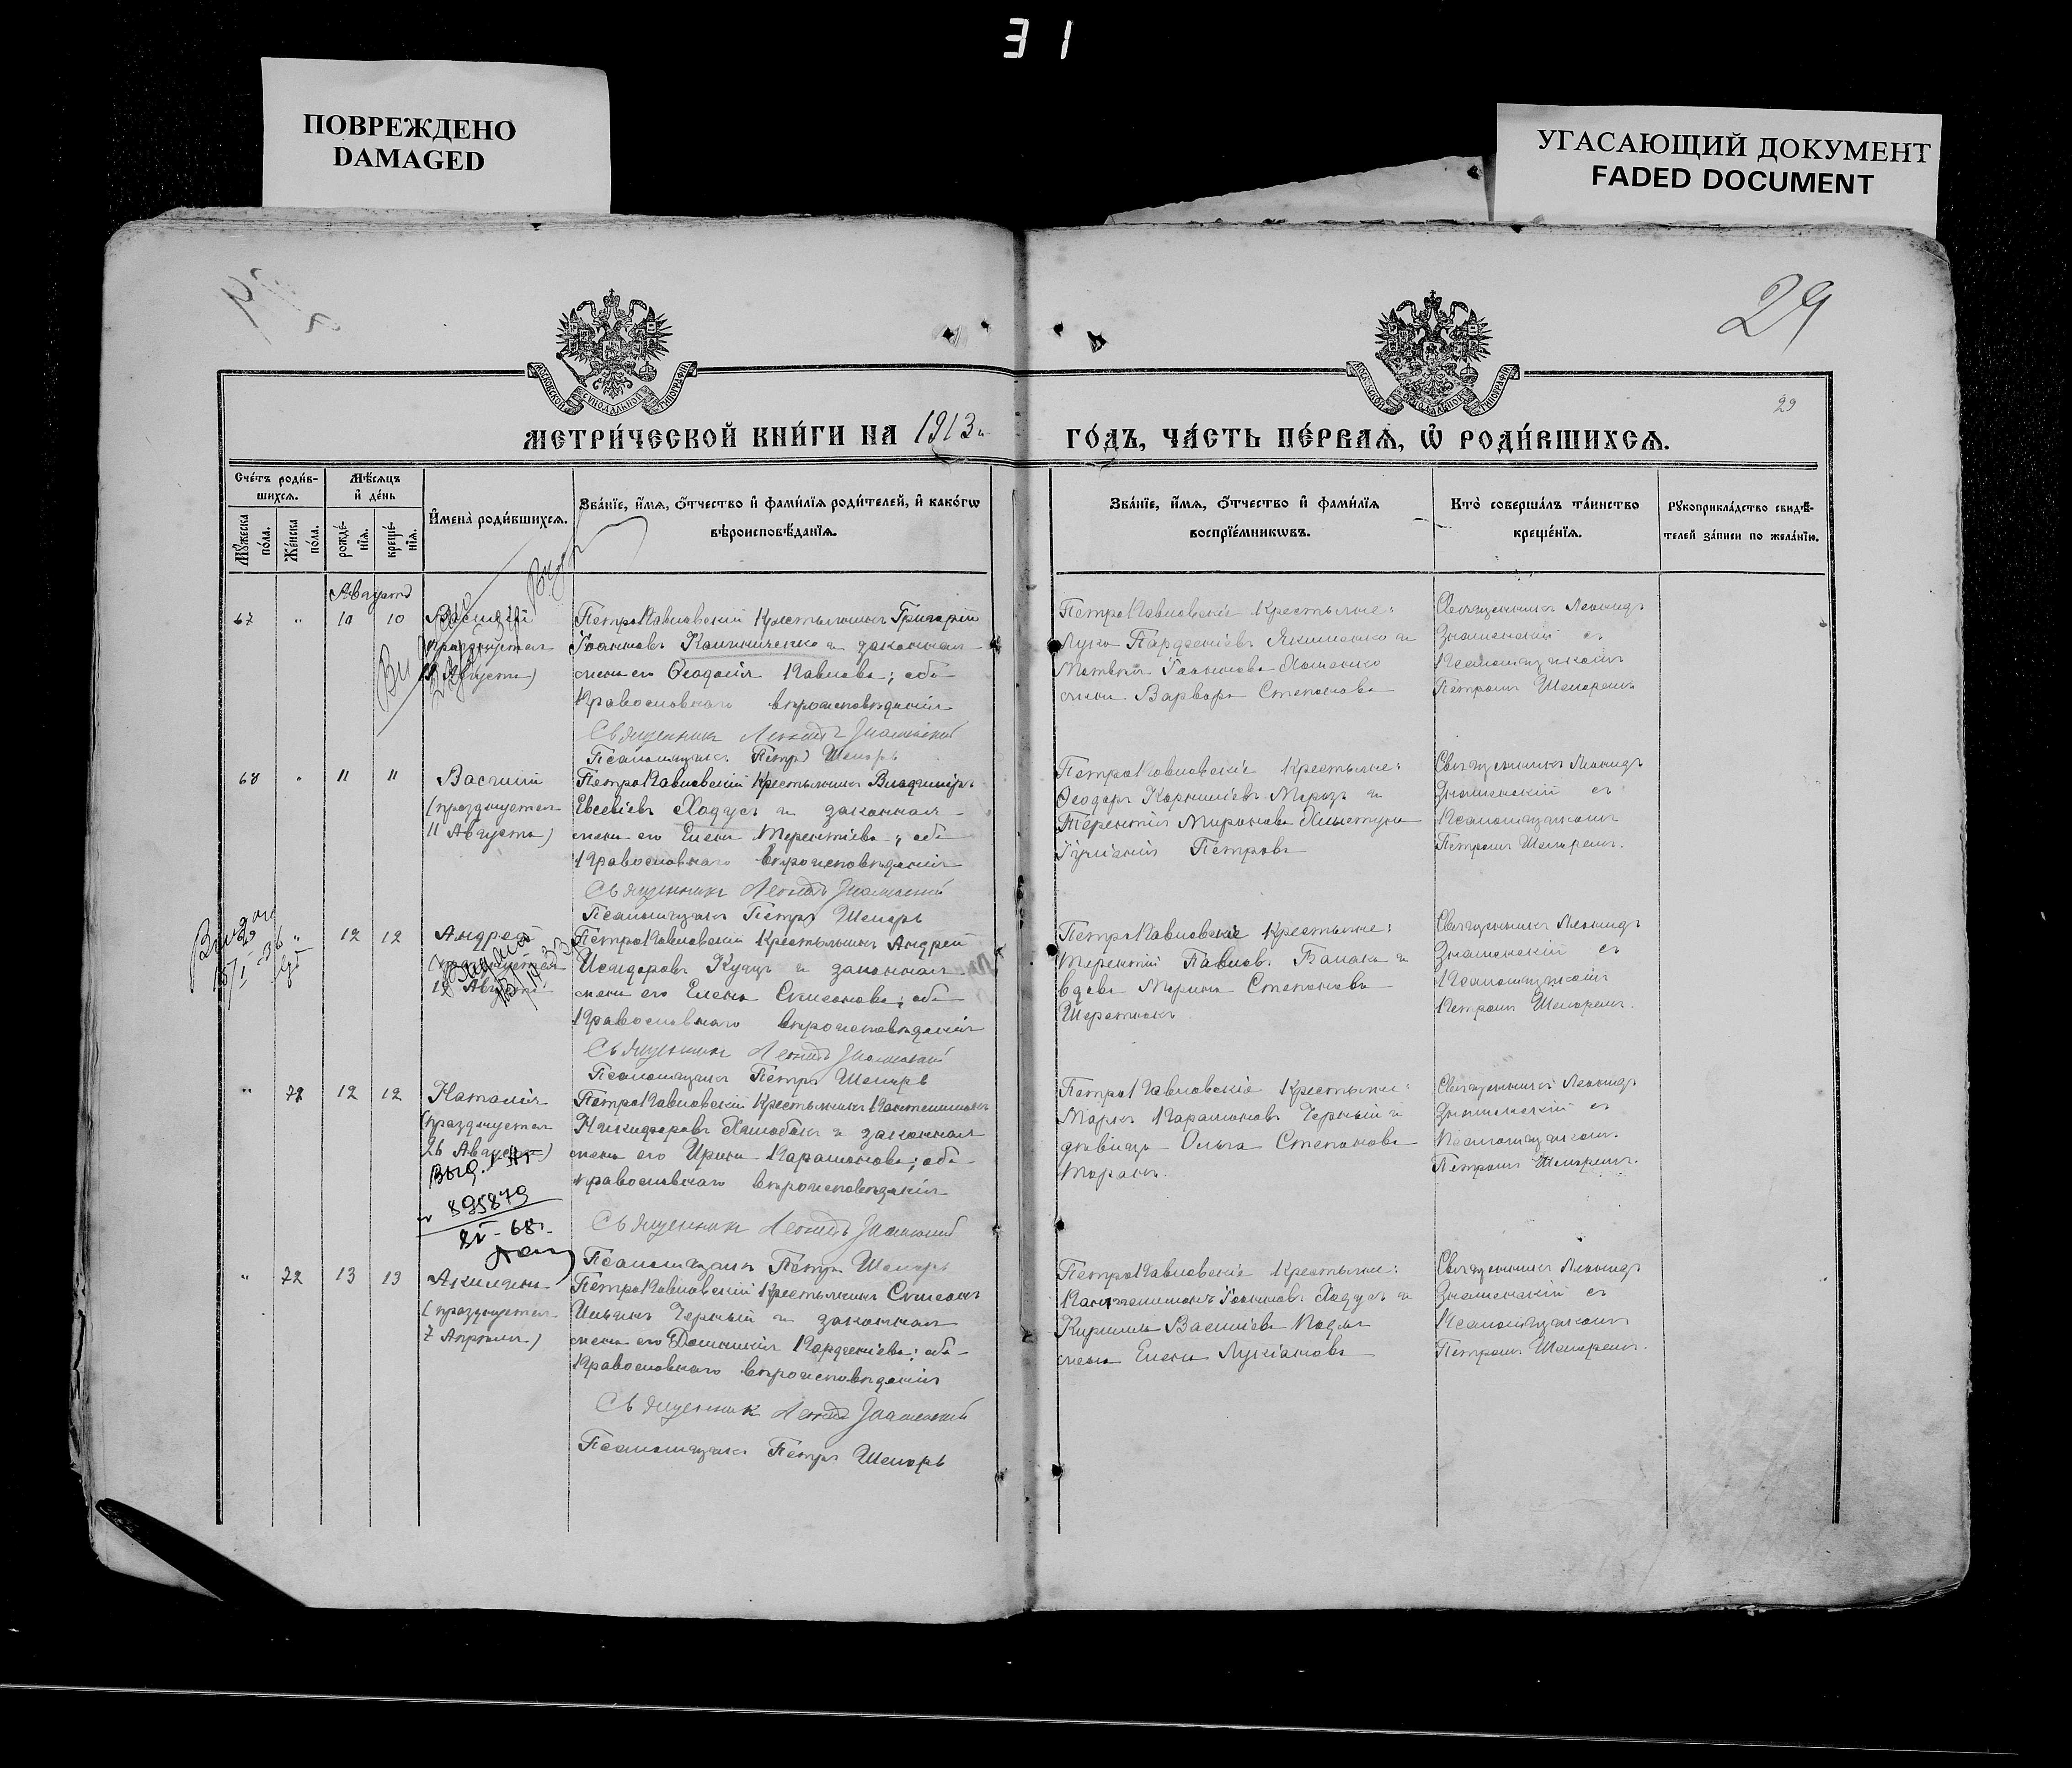 31
ПОВРЕЖДЕНО
DAMAGED
УГАСАЮЩИЙ ДОКУМЕНТ
FADED DOCUMENT
29
29
МЕТРИ́ЧЕСКОЙ КНИ́ГИ НА 1913й
ГО́ДЪ, ЧА́СТЬ ПЕ́РВАѦ, Ѽ РОДИ́ВШИХСѦ.
Сче́тъ роди́в-
шихся.
Мѣ́сяцъ
и҆ де́нь
Мꙋ́жеска по́ла.
Же́нска по́ла.
рожде́-
нїя.
креще́-
нїя.
И҆мена̀ роди́вшихся.
Зва́нїе, и҆́мя, ѻ҆́тчество и҆ фами́лїя роди́телей, и҆ како́гѡ
вѣроисповѣ́данїя.
Зва́нїе, и҆́мя, ѻ҆́тчество и҆ фами́лїя
воспрїе́мникѡвъ.
Кто̀ соверша́лъ та́инство
креще́нїя.
Рꙋкоприкла́дство свидѣ́-
телей за́писи по жела́нїю.
Августъ
67 " 10 10 Василій
(празднуется
Августа)
ПетроПавловскій крестьянинъ Григорій
Іоанновъ Калиниченко и законная
жена его Ѳеодосія Павлова; оба
Православнаго вѣроисповѣданія
Священникъ Леонидъ Знаменскій
Псаломщикъ Петръ Шепарь
ПетроПавловскіе крестьяне:
Лука Парѳеніевъ Якименко и
Матвѣя Іоаннова Хоменко
жена Варвара Степанова
Священникъ Леонидъ
Знаменскій съ
Псаломщикомъ
Петромъ Шепаремъ
68 " 11 11 Василій
(празднуется
11 Августа)
ПетроПавловскій крестьянинъ Владиміръ
Евсевіевъ Хадусъ и законная
жена его Елена Терентіева; оба
Православнаго вѣроисповѣданія
Священникъ Леонидъ Знаменскій
Псаломщикъ Петръ Шепарь
ПетроПавловскіе крестьяне:
Ѳеодоръ Корниліевъ Морозъ и
Терентія Миронова
Іуліанія Петрова
Священникъ Леонидъ
Знаменскій съ
Псаломщикомъ
Петромъ Шепаремъ.
" 12 12 Андрей
(празднуется
19 Августа)
ПетроПавловскій крестьянинъ Андрей
Исидоровъ Куцъ и законная
жена его Елена Симеонова; оба
Православнаго вѣроисповѣданія
Священникъ Леонидъ Знаменскій
Псаломщикъ Петръ Шепарь
ПетроПавловскіе крестьяне:
Терентій Павловъ и
вдова Марина Степанова
Священникъ Леонидъ
Знаменскій съ
Псаломщикомъ
Петромъ Шепаремъ.
" 12 12 Наталія
(празднуется
26 Августа)
Выд.
895879
68г.
ПетроПавловскій крестьянинъ Пантелимонъ
Никифоровъ и законная
жена его Ирина Парамонова; оба
Православнаго вѣроисповѣданія
Священникъ Леонидъ Знаменскій
Псаломщикъ Петръ Шепарь
ПетроПавловскіе крестьяне:
Маркъ Парамоновъ Черный и
дѣвица Ольга Степанова
Священникъ Леонидъ
Знаменскій съ
Псаломщикомъ
Петромъ Шепаремъ.
" 72 13 13 Акилина
(празднуется
7 Апрѣля)
ПетроПавловскій крестьянинъ Симеонъ
Ильинъ Черный и законная
жена его Домникія Парѳеніева; оба
Православнаго вѣроисповѣданія
Священникъ Леонидъ Знаменскій
Псаломщикъ Петръ Шепарь
ПетроПавловскіе крестьяне:
Пантелимонъ Іоанновъ Хадусъ и
Кирилла Василіева
жена Елена Лукіанова
Священникъ Леонидъ
Знаменскій съ
Псаломщикомъ
Петромъ Шепаремъ.